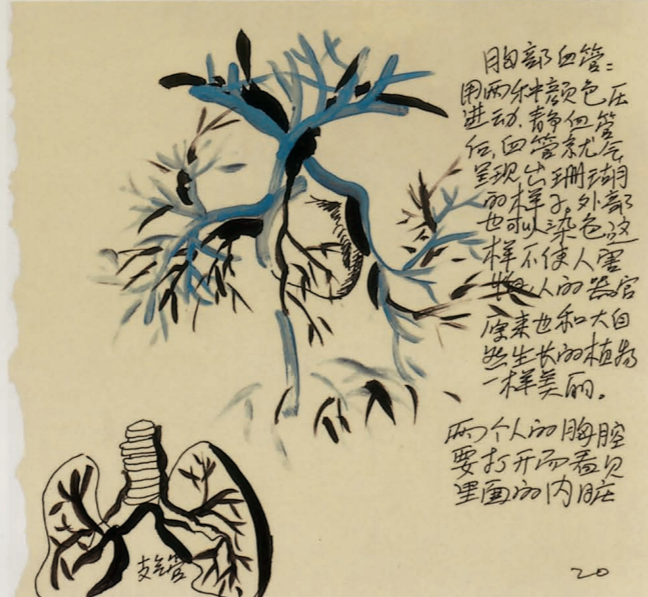 胸部血管:
用两种颜色压
进动.静血管
后,血管就会
呈现出珊瑚
的样子,外部
也可以染色这
样不使人害
怕,人的器官
原来也和大自
然生长的植物
一样美丽。
两个人的胸腔
要打开而看见
里面的内脏
支气管
20